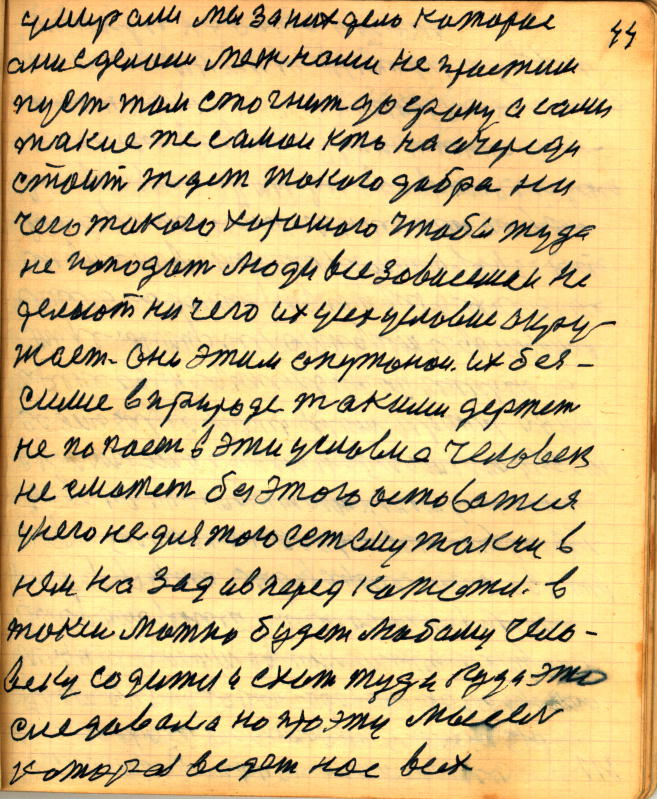 44
умирали мы за них дело которое
ани сделали меж нами не простим
пуст там стогнит до сроку а сами
такие же самаи кто на очереди
стоит ждет такого добра ни
чего такого хорошого чтобы туда
не пападат люди все зависемаи не
делают ни чего их усех условие окру-
жает. Они этим опутонаи. их без-
силие в природе такими держет
не попаст в эти условиа человек
не сможет без этого оставатся
у него не для того
нем на зад а вперед катится. в
можно будет любаму чело-
веку садится и ехат туда куда это
следавала но про эту мысел
которая ведет нас всех